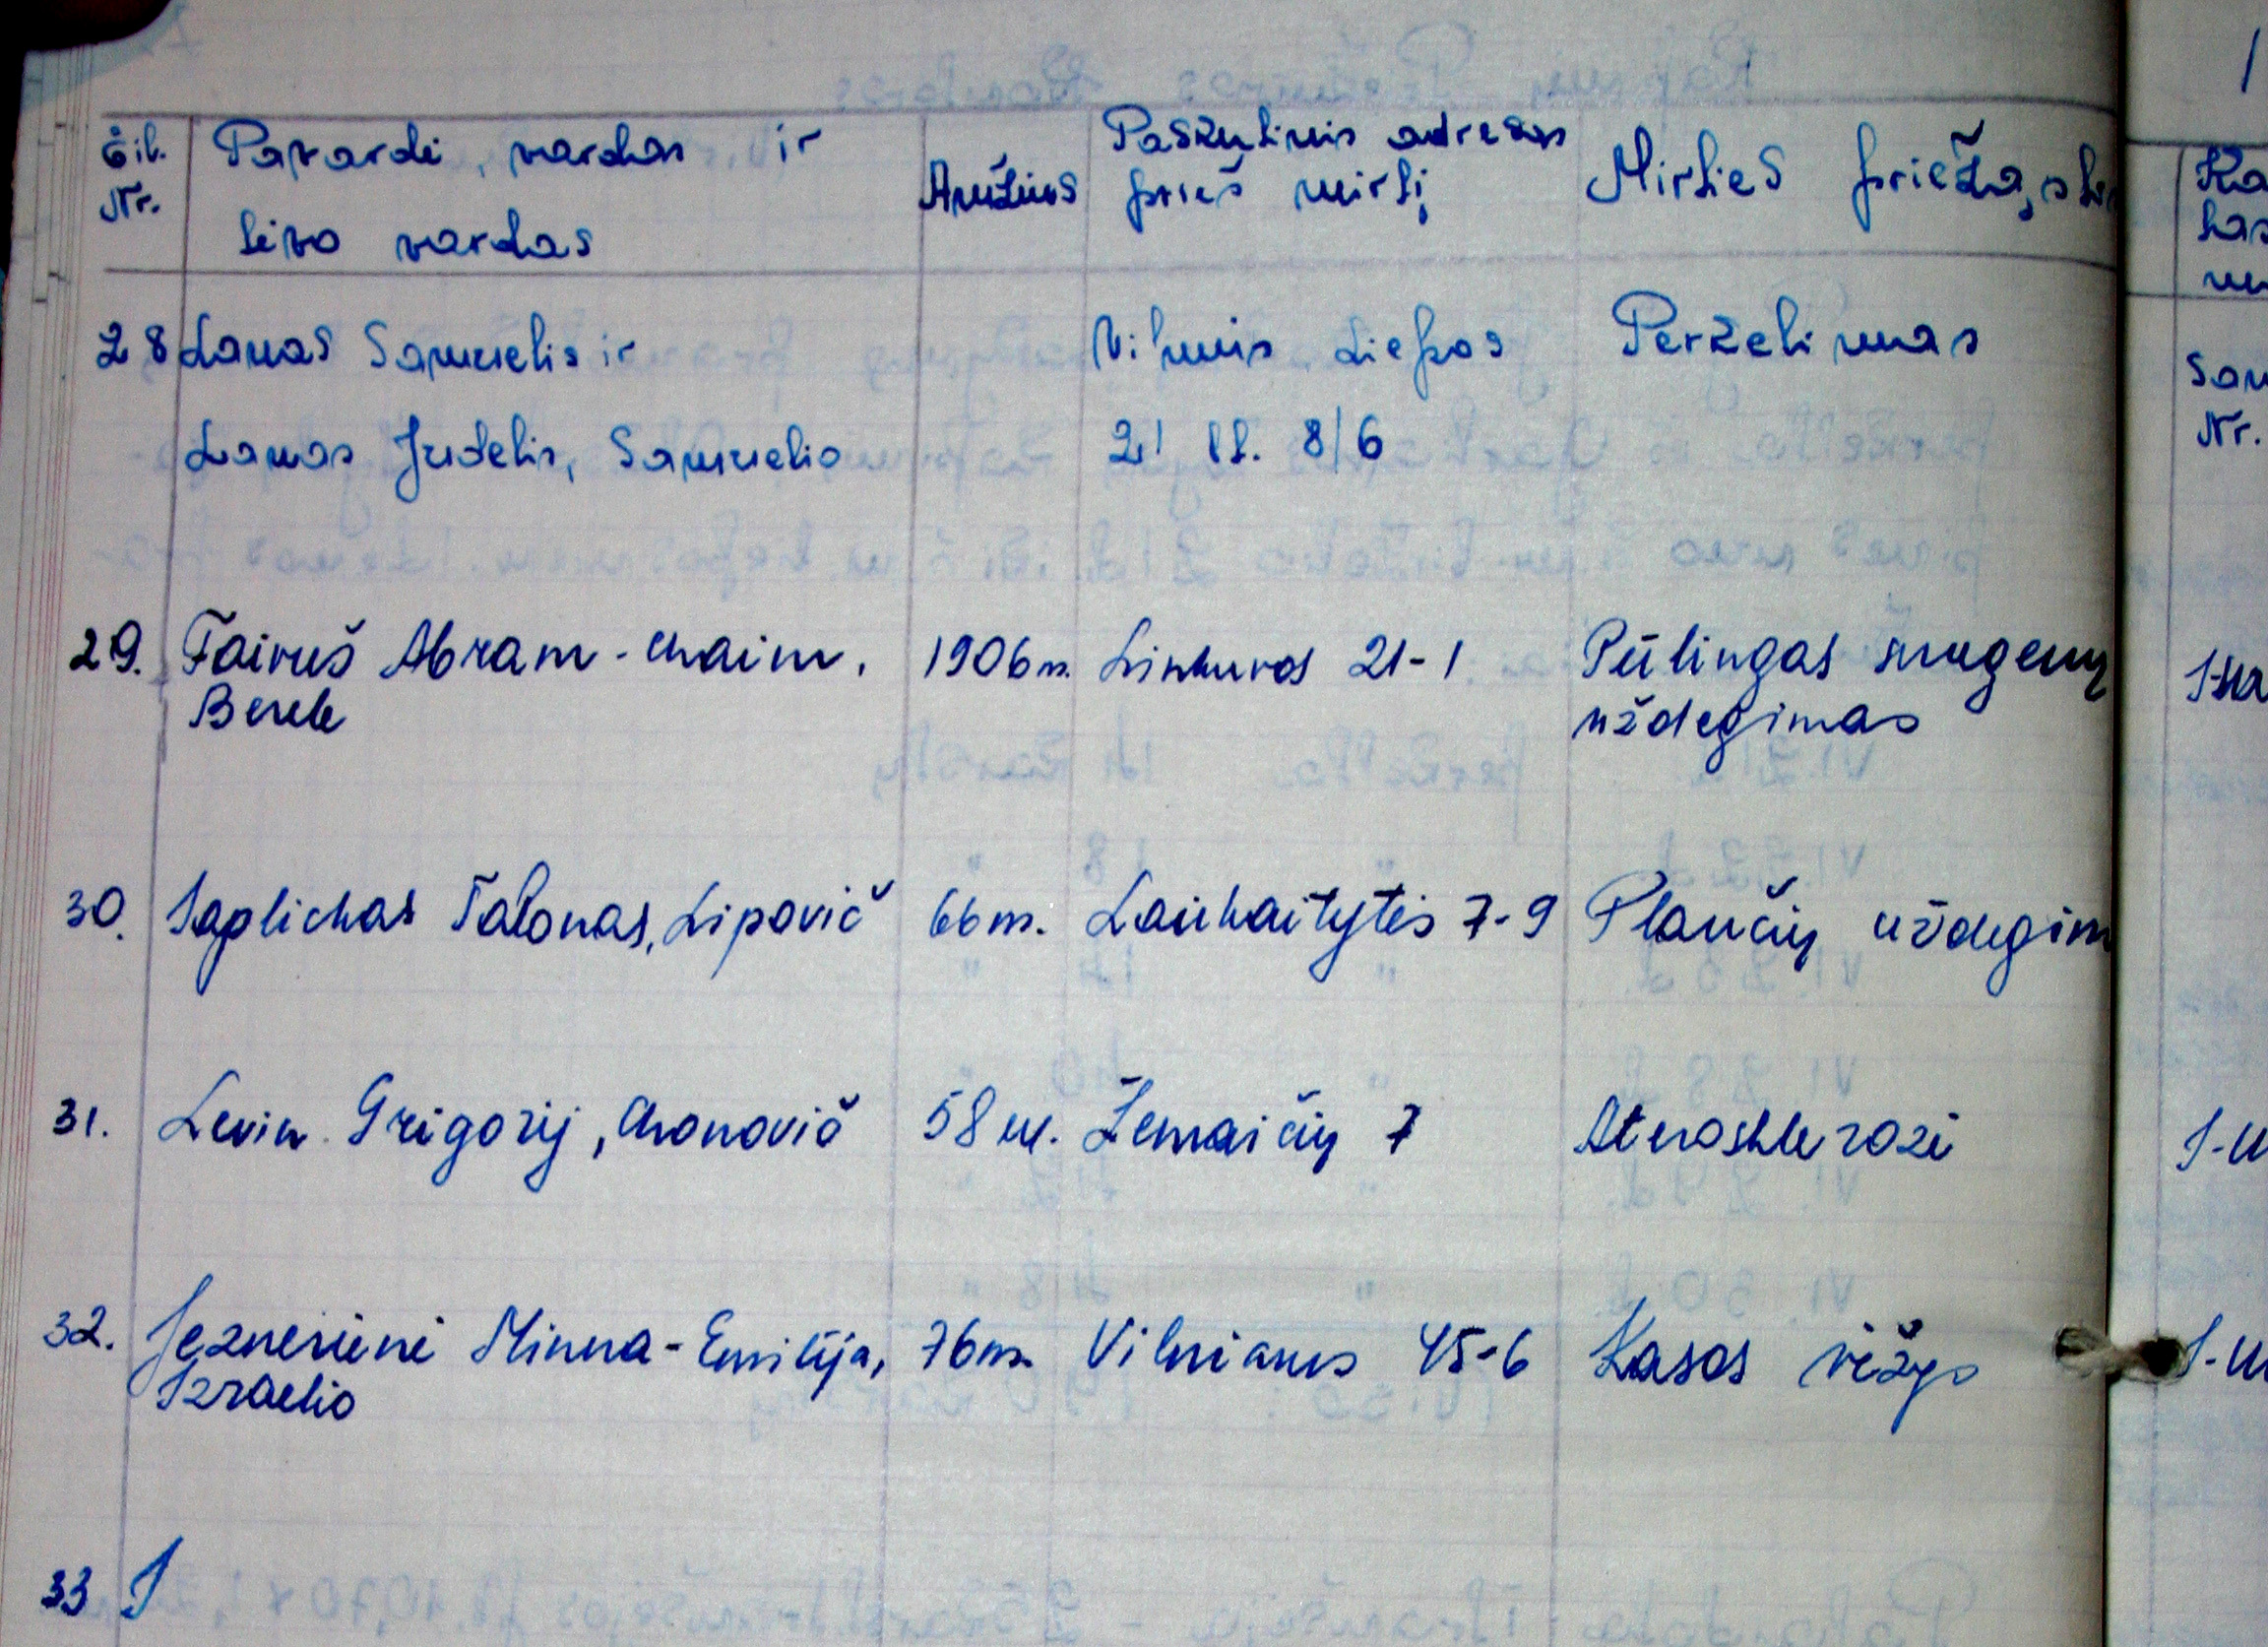 Eil. Nr.
Pavardė, vardas ir
tėvo vardas
Amžius
Paskutinis adresas
prieš mirtį
Mirties priežastis
28 Lanas Samuelis ir
Lanas Judelis, Samuelio
Vilnius Liepos
21 8/6
Perkėlimas
29. Fairuš Abram-Chaim,
Berele
1906 m.
Linkuvos 21-1
Pūlingas smegenų
uždegimas
30. Saplichas Talonas, Lipovič
66 m.
Laukaitytės 7-9
Plaučių uždegim
31. Levin Grigorij, Chonovič
58 m.
Žemaičių 7
Aterosklerozė
32. Jeznerienė Minna-Emilija,
Izraelio
76 m.
Vilniaus 45-6
Kasos vėžys
33
Nr.